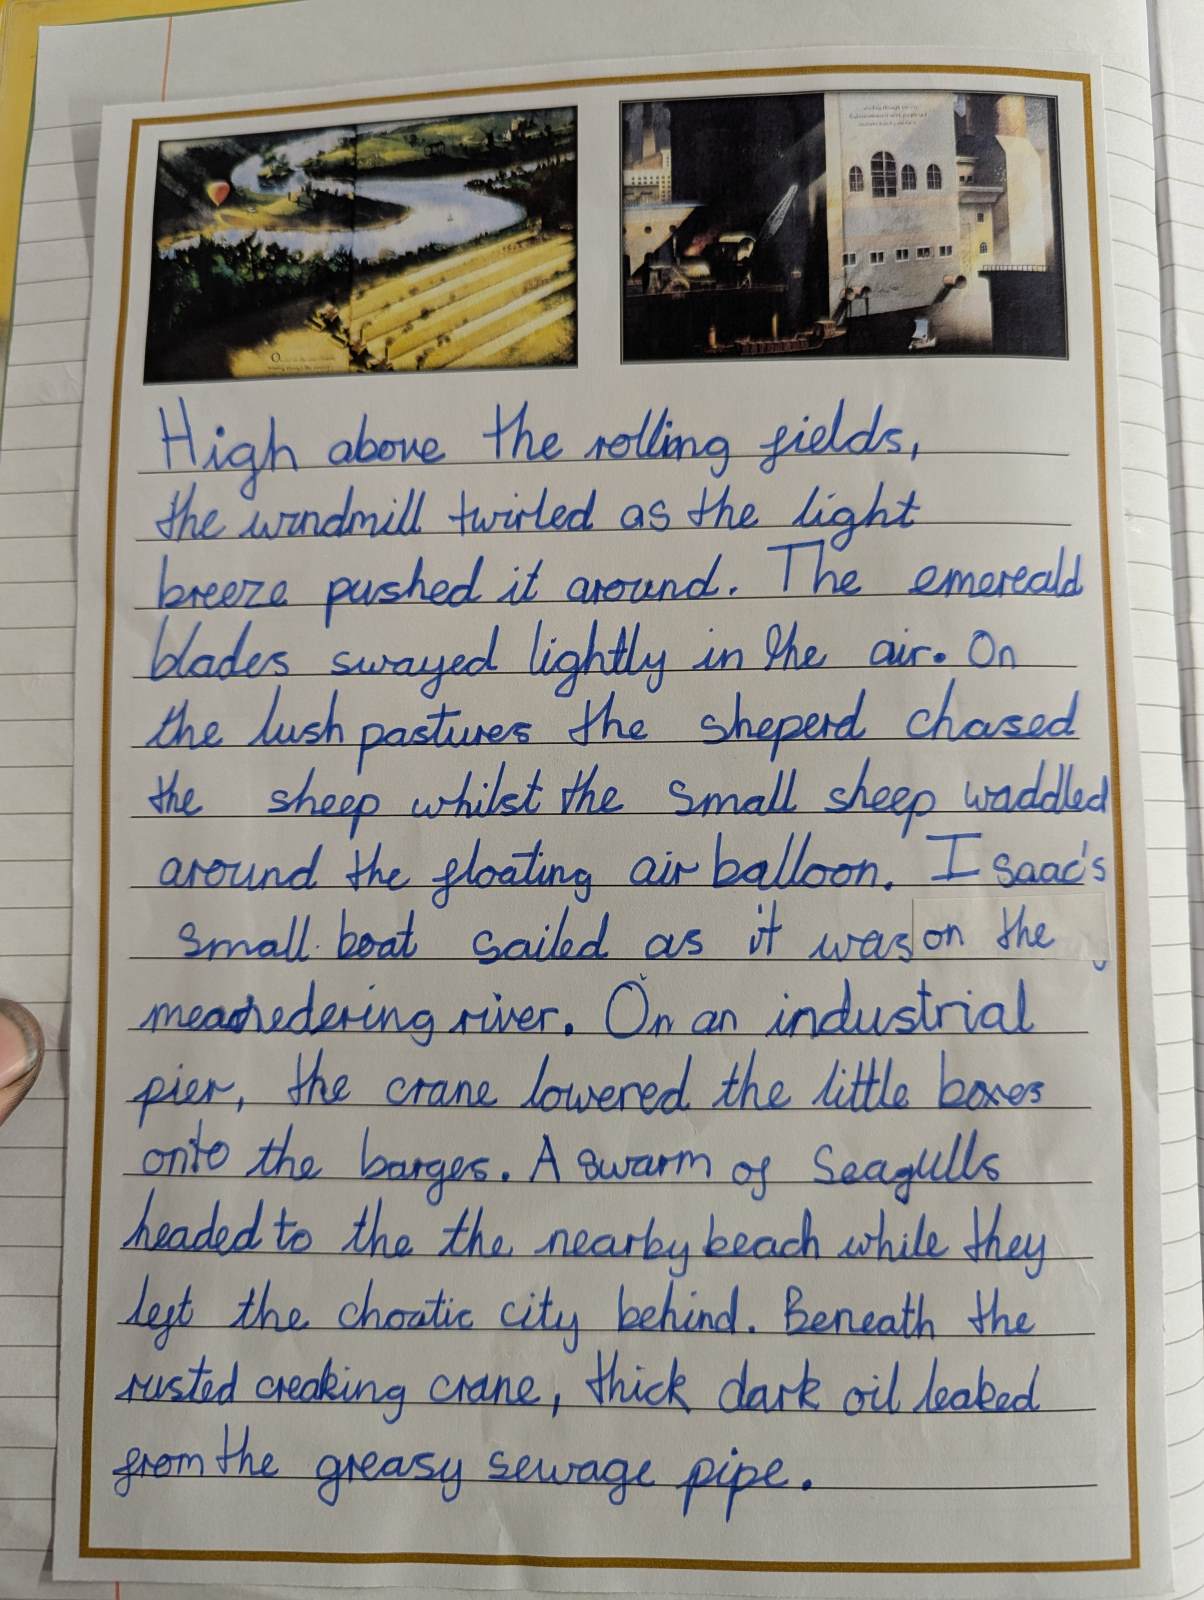 High above the rolling fields,
the windmill twirled as the light
breeze pushed it around. The emereald
blades swayed lightly in the air. On
the lush pastures the sheperd chased
the sheep whilst the small sheep waddled
around the floating air balloon. Isaac's
small boat sailed as it was on the
river. On an industrial
pier, the crane lowered the little boxes
onto the barges. A swarm of Seagulls
headed to the the nearby beach while they
left the choatic city behind. Beneath the
rusted creaking crane, thick dark oil leaked
from the greasy sewage pipe.